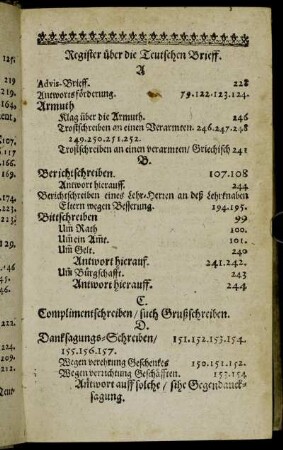 Register über die Teutschen Brieff.
A
Advis-Brieff. 228
Antwortsförderung. 79.122.123.124.
Armuth
Klag über die Armuth. 246
Trostschreiben an einen Verarmten. 246.247.248
249.250.251.252.
Trostschreiben an einen verarmten/ Griechisch 241
B.
Berichtschreiben. 107.108
Antwort hierauff. 244
Berichtschreiben eines Lehr-Herren an deß Lehrknaben
Eltern wegen Besserung. 194.195.
Bittschreiben 99
Um̃ Rath 100.
Um̃ ein Am̃t. 101.
Um̃ Gelt. 240
Antwort hierauf. 241.242.
Um̃ Bürgschafft. 243
Antwort hierauff. 244
C.
Complimentschreiben/ such Grußschreiben.
D.
Dancksagungs-Schreiben/ 151.152.153.154.
155.156.157.
Wegen verehrung Geschenkes 150.151.152.
Wegen verrichtung Geschäfften. 153.154
Antwort auff solche/ sihe Gegendanck-
sagung.